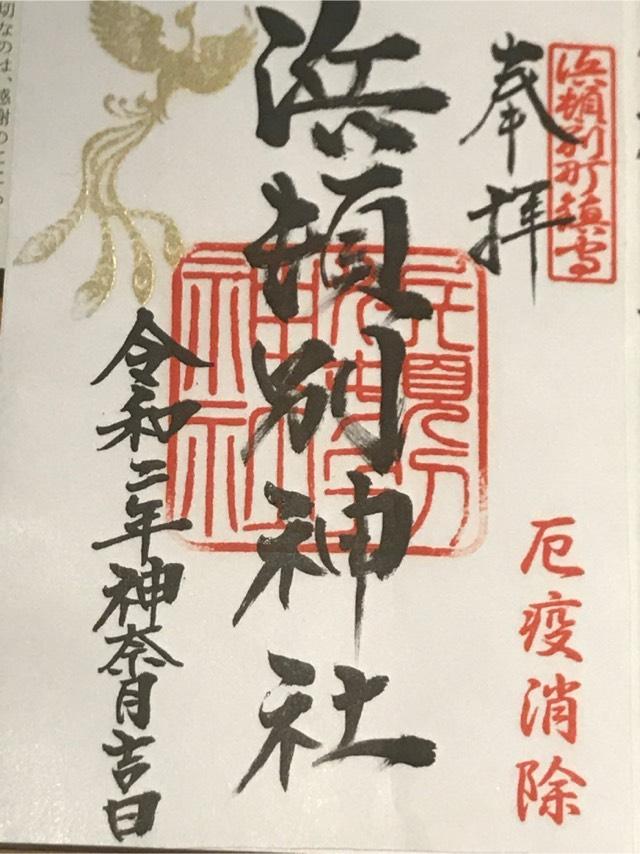 浜頓別町鎮守
奉拝
厄疫消除
浜頓別神社
令和二年神奈月吉日
切なのは、感謝のこころ